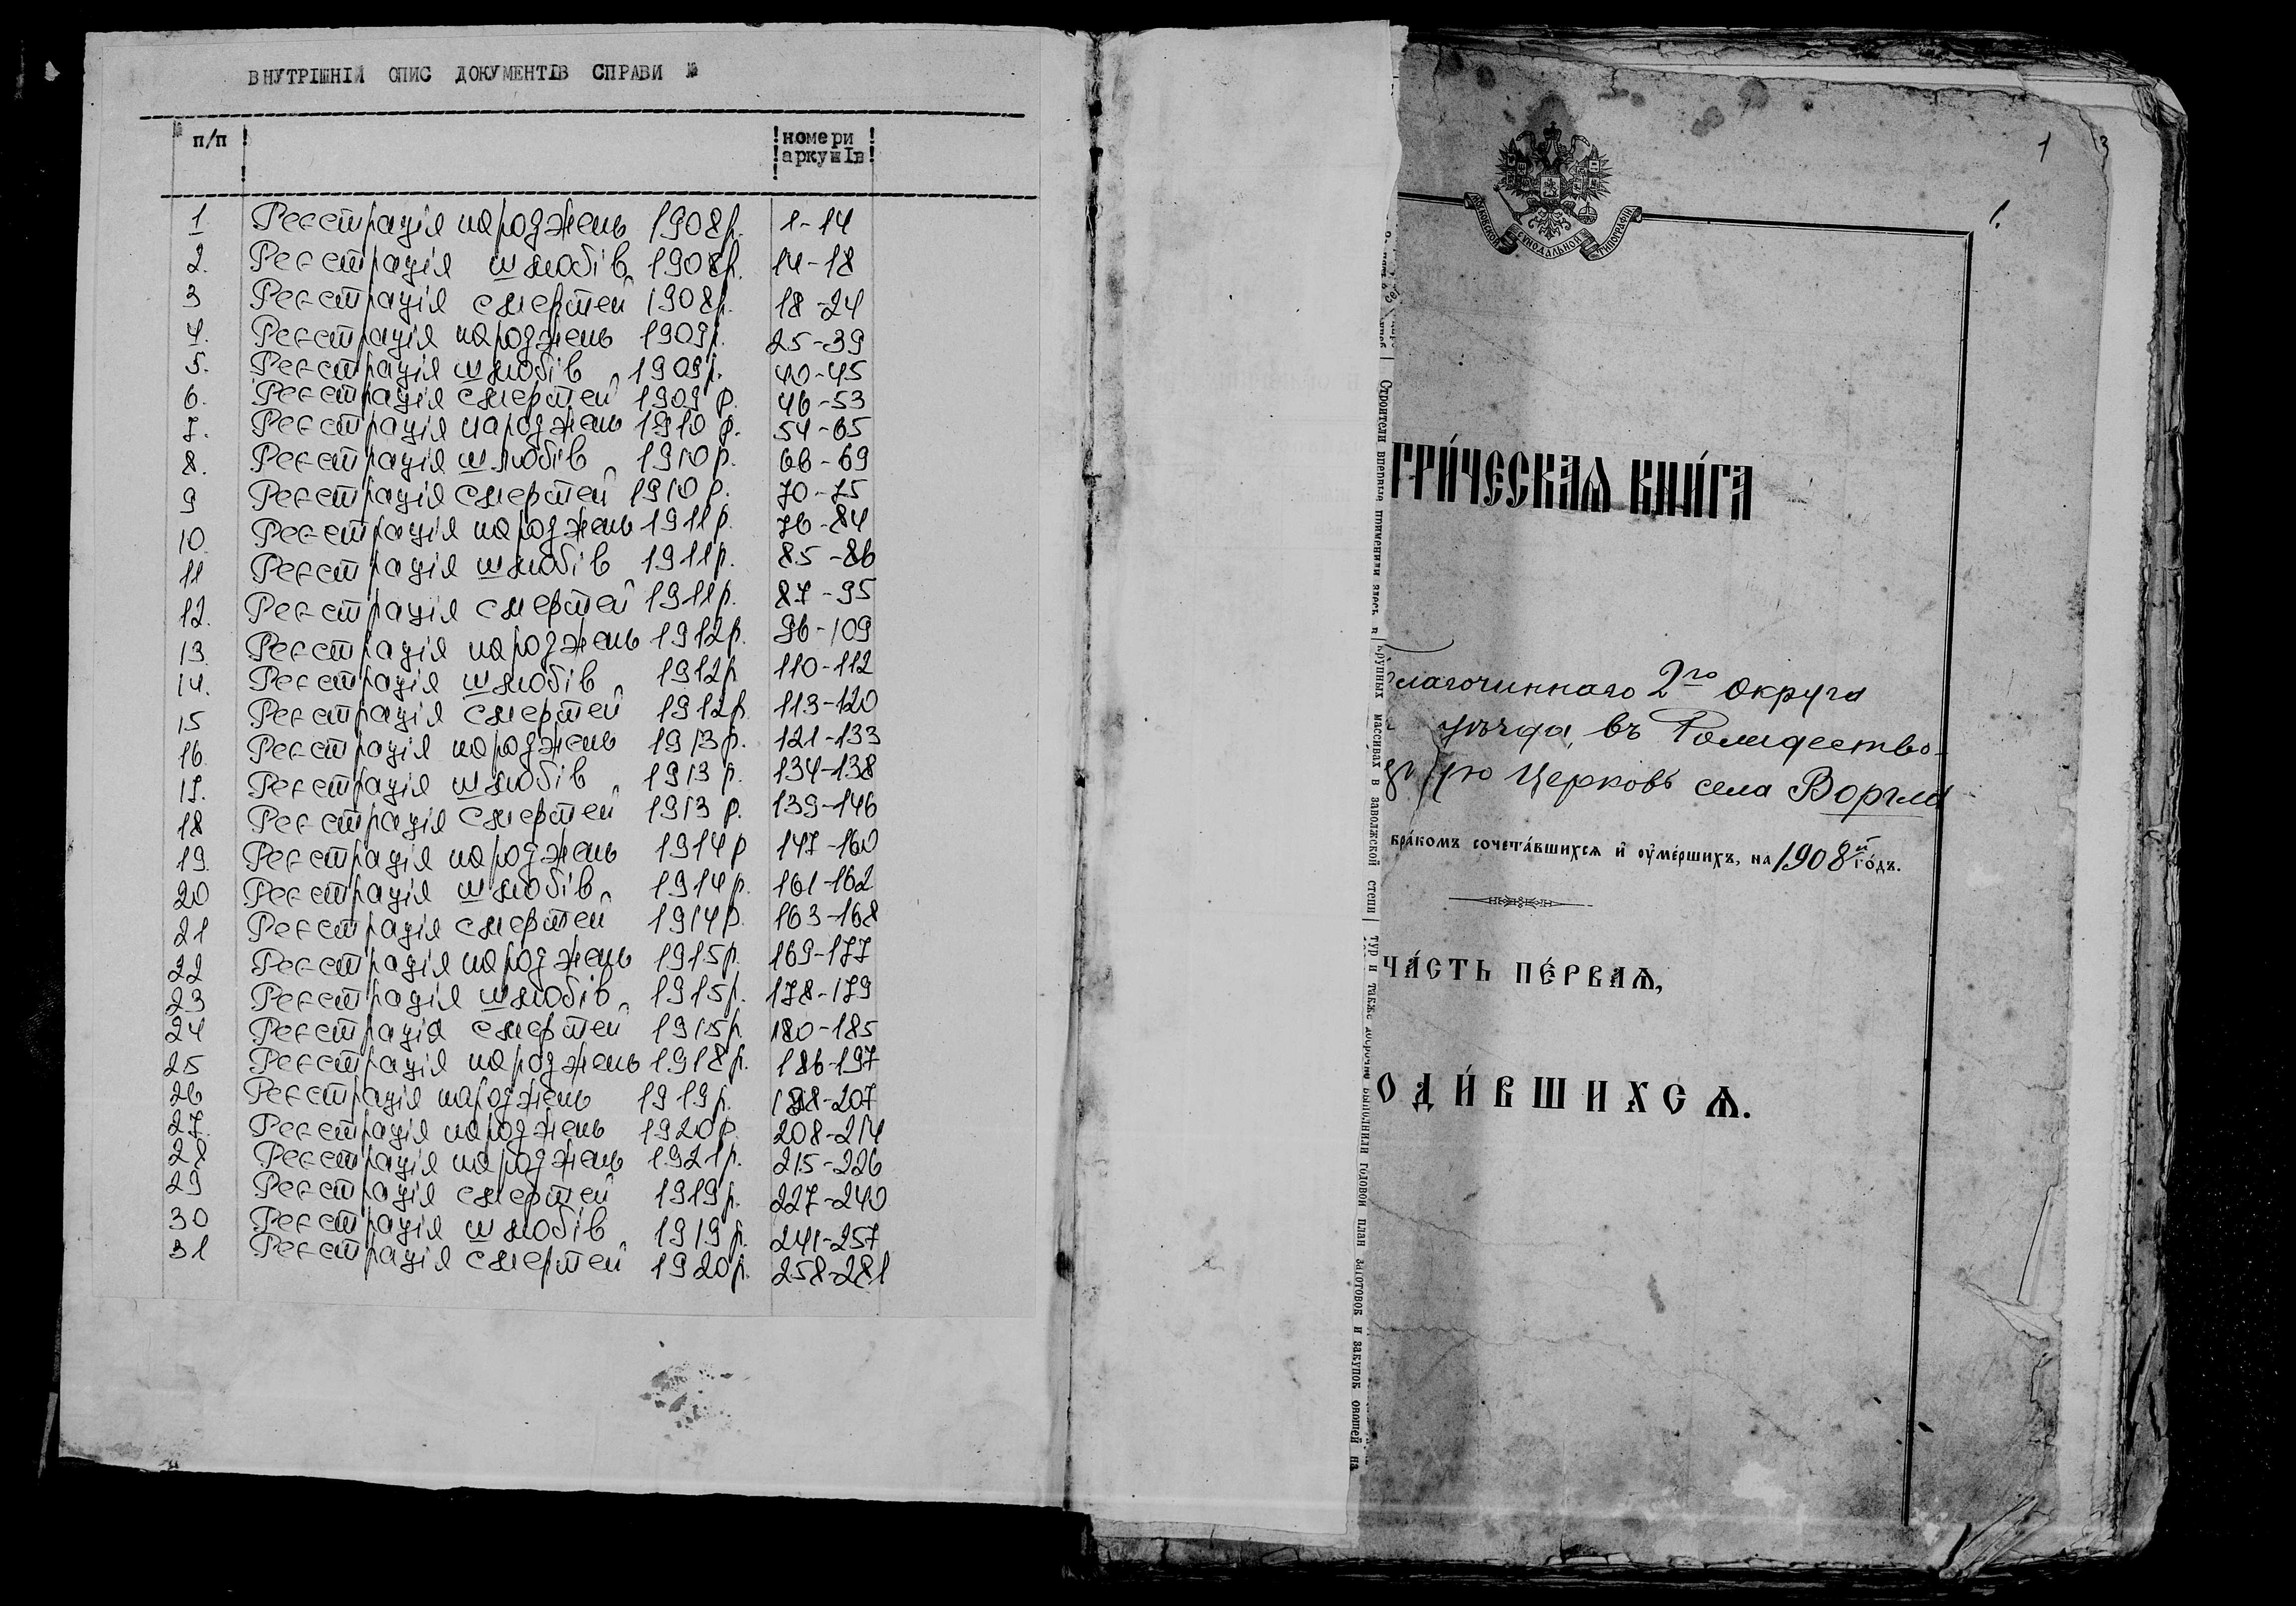 ВНУТРІШНІЙ ОПИС ДОКУМЕНТІВ СПРАВИ №
№ п/п
номери аркушів
1 Реєстрація народжень 1908р. 1-14
2. Реєстрація шлюбів 1908р. 14-18
3 Реєстрація смертей 1908р. 18-24
4. Реєстрація народжень 1909р. 25-39
5. Реєстрація шлюбів 1909р. 40-45
6. Реєстрація смертей 1909 р. 46-53
7. Реєстрація народжень 1910 р. 54-65
8. Реєстрація шлюбів 1910р. 66-69
9 Реєстрація смертей 1910 р. 70-75
10. Реєстрація народжень 1911р. 76-84
11 Реєстрація шлюбів 1911р. 85-86
12. Реєстрація смертей 1911р. 87-95
13. Реєстрація народжень 1912р. 96-109
14. Реєстрація шлюбів 1912р 110-112
15 Реєстрація смертей 1912р. 113-120
16. Реєстрація народжень 1913р. 121-133
17. Реєстрація шлюбів 1913 р. 134-138
18 Реєстрація смертей 1913 р. 139-146
19. Реєстрація народжень 1914р 147-160
20 Реєстрація шлюбів 1914р. 161-162
21 Реєстрація смертей 1914р. 163-168
22 Реєстрація народжень 1915р. 169-177
23 Реєстрація шлюбів 1915р. 178-179
24 Реєстрація смертей 1915р. 180-185
25 Реєстрація народжень 1918р. 186-197
26 Реєстрація народжень 1919р. 198-207
27. Реєстрація народжень 1920р. 208-214
28 Реєстрація народжень 1921р. 215-226
29 Реєстрація смертей 1919р. 227-240
30 Реєстрація шлюбів 1919р. 241-257
31 Реєстрація смертей 1920р. 258-281
Строители впервые применили здесь в
крупных массивах в заволжской степи
тур и также досрочно выполнили годовой план заготовок и закупок овощей на
1 3
1.
МОСКОВСКОЙ СѴНОДАЛЬНОЙ ТИПОГРАФІИ
ГРИ́ЧЕСКАѦ КНИ́ГА
благочиннаго 2го округа
уѣзда, въ Рождество-
цкую Церковь села Воргла
бра́комъ сочета́вшихсѧ и҆ ѹ҆ме́ршихъ, на 1908й го́дъ.
ЧА́СТЬ ПЕ́РВАѦ,
ОДИ́ВШИХСѦ.